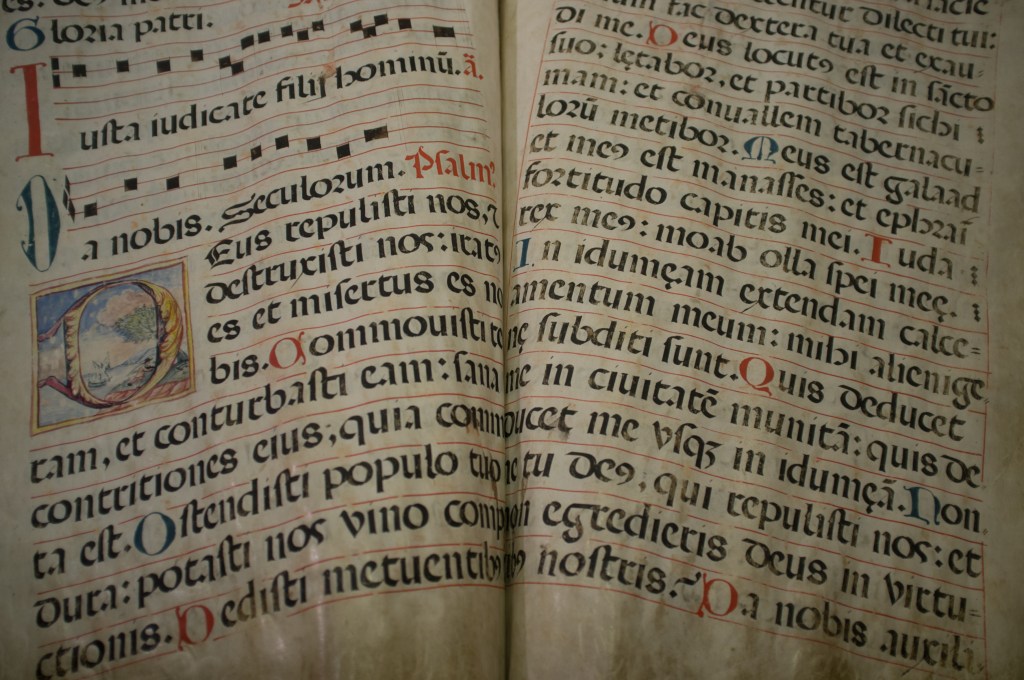 Gloria patri.
Iusta iudicate filij hominū. ā.
Da nobis. Seculorum. Psalm⁹.
Deus repulisti nos, ⁊
destruxisti nos: irat⁹
es et misertus es no
bis. Commouisti te
ram, et conturbasti eam: sana
contritiones eius, quia comm
ta est. Ostendisti populo tuo
dura: potasti nos vino comp
ctionis. Dedisti metuentib⁹
fac dextera tua et exau-
di me. Deus locut⁹ est in sācto
suo; lętabor, et partibor sichi
mam: et conuallem tabernacu-
lorū metibor. Meus est galaad
et me⁹ est manasses: et ephrai
fortitudo capitis mei. Iuda
rex me⁹: moab olla spei meę.
In idumęam extendam calce-
amentum meum: mihi alienige
nę subditi sunt. Quis deducet
me in ciuitatē munitā: quis de
ducet me vsqꝫ in idumęā. Non
ne tu de⁹, qui repulisti nos: et
non egredieris deus in virtu-
nostris. Da nobis auxili